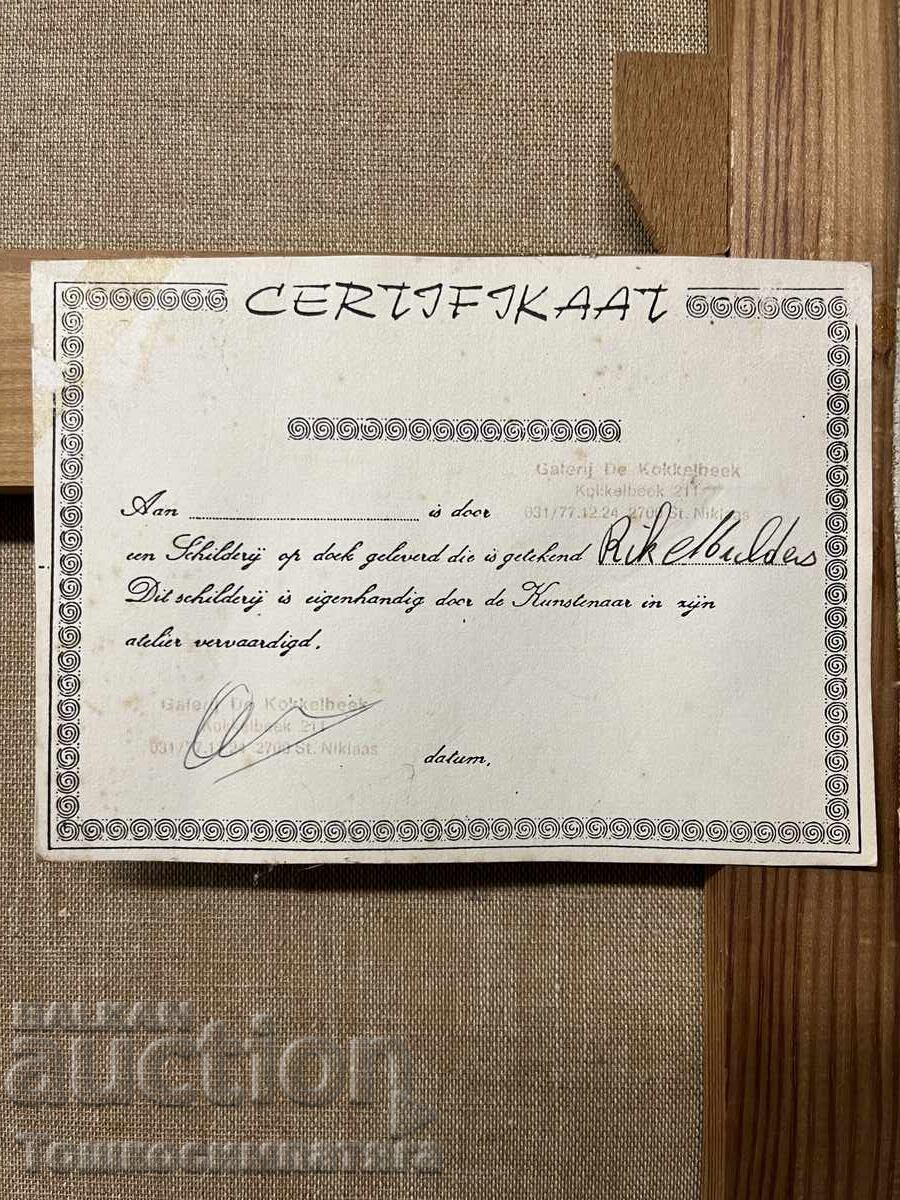 CERTIFIKAAT
Galerij De Kokkelbeek
Kokkelbeek 211
Aan is door 031/77.12.24 2700 St. Niklaas
een Schilderij op doek geleverd die is getekend Rik Mulders
Dit schilderij is eigenhandig door de Kunstenaar in zijn
atelier vervaardigd.
Galerij De Kokkelbeek
Kokkelbeek 211
031/77.12.24 2700 St. Niklaas
datum.
BALKAN
auction